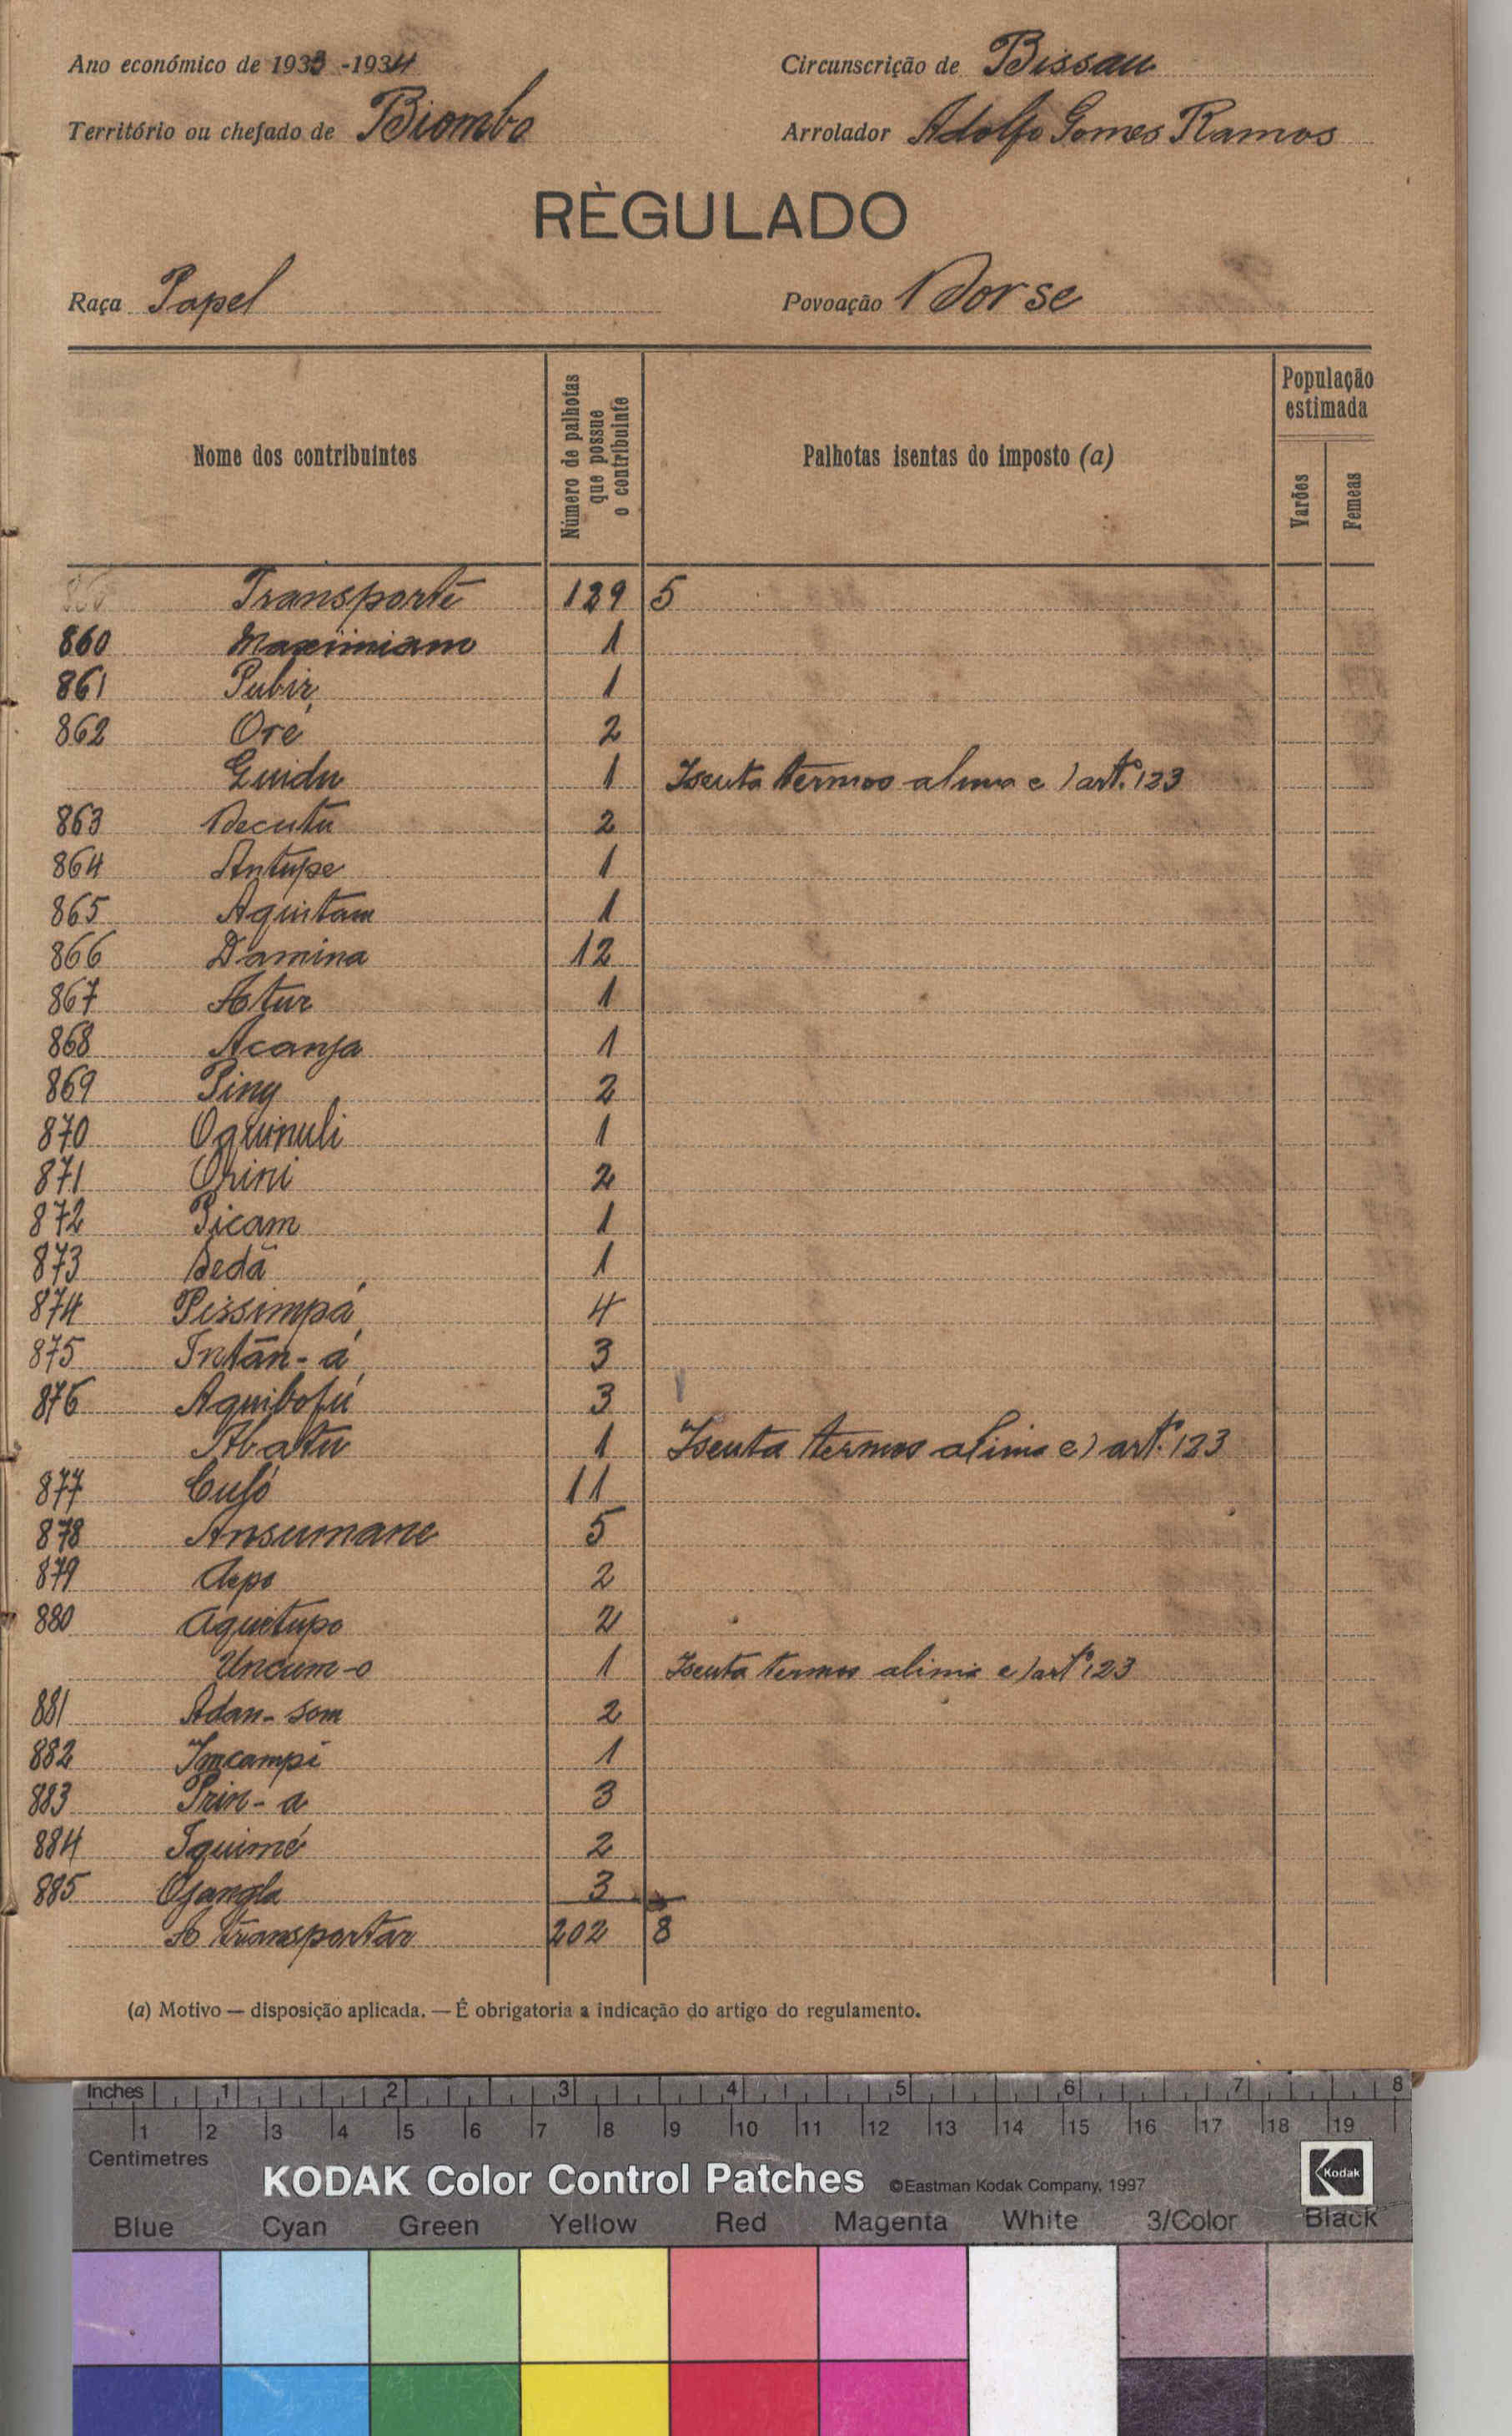 Ano económico de 1933-1934 Circunscrição de Bissau
Território ou chefado de Biombo Arrolador Adolfo Gomes Ramos
RÈGULADO
Raça Papel Povoação Dorse
Nome dos contribuintes
Número de palhotas que possue o contribuinte
Palhotas isentas do imposto (a)
População estimada
Varões
Femeas
Transporte 129 5
860 Maximiam 1
861 Pubir 1
862 Oré 2
Guidu 1 Isenta termos alinea e) artº. 123
863 Decutu 2
864 Antupe 1
865 Aquitam 1
866 Damina 12
867 Atur 1
868 Acanja 1
869 Piny 2
870 Oquinuli 1
871 Orini 2
872 Picam 1
873 Bedã 1
874 Pissimpá 4
875 Intãn-á 3
876 Aquibofú 3
Abatu 1 Isenta termos alinia e) artº. 123
877 Cufó 11
878 Ansumane 5
879 Aepo 2
880 Aquitupo 2
Uncum-o 1 Isenta termos alinia e) artº 123
881 Adan-som 2
882 Imcampi 1
883 Prin-a 3
884 Iquimé 2
885 Ojangla 3
A transportar 202 8
(a) Motivo — disposição aplicada. — É obrigatoria a indicação do artigo do regulamento.
Inches 1 2 3 4 5 6 7 8
1 2 3 4 5 6 7 8 9 10 11 12 13 14 15 16 17 18 19
Centimetres
KODAK Color Control Patches ©Eastman Kodak Company, 1997 Kodak
Blue Cyan Green Yellow Red Magenta White 3/Color Black